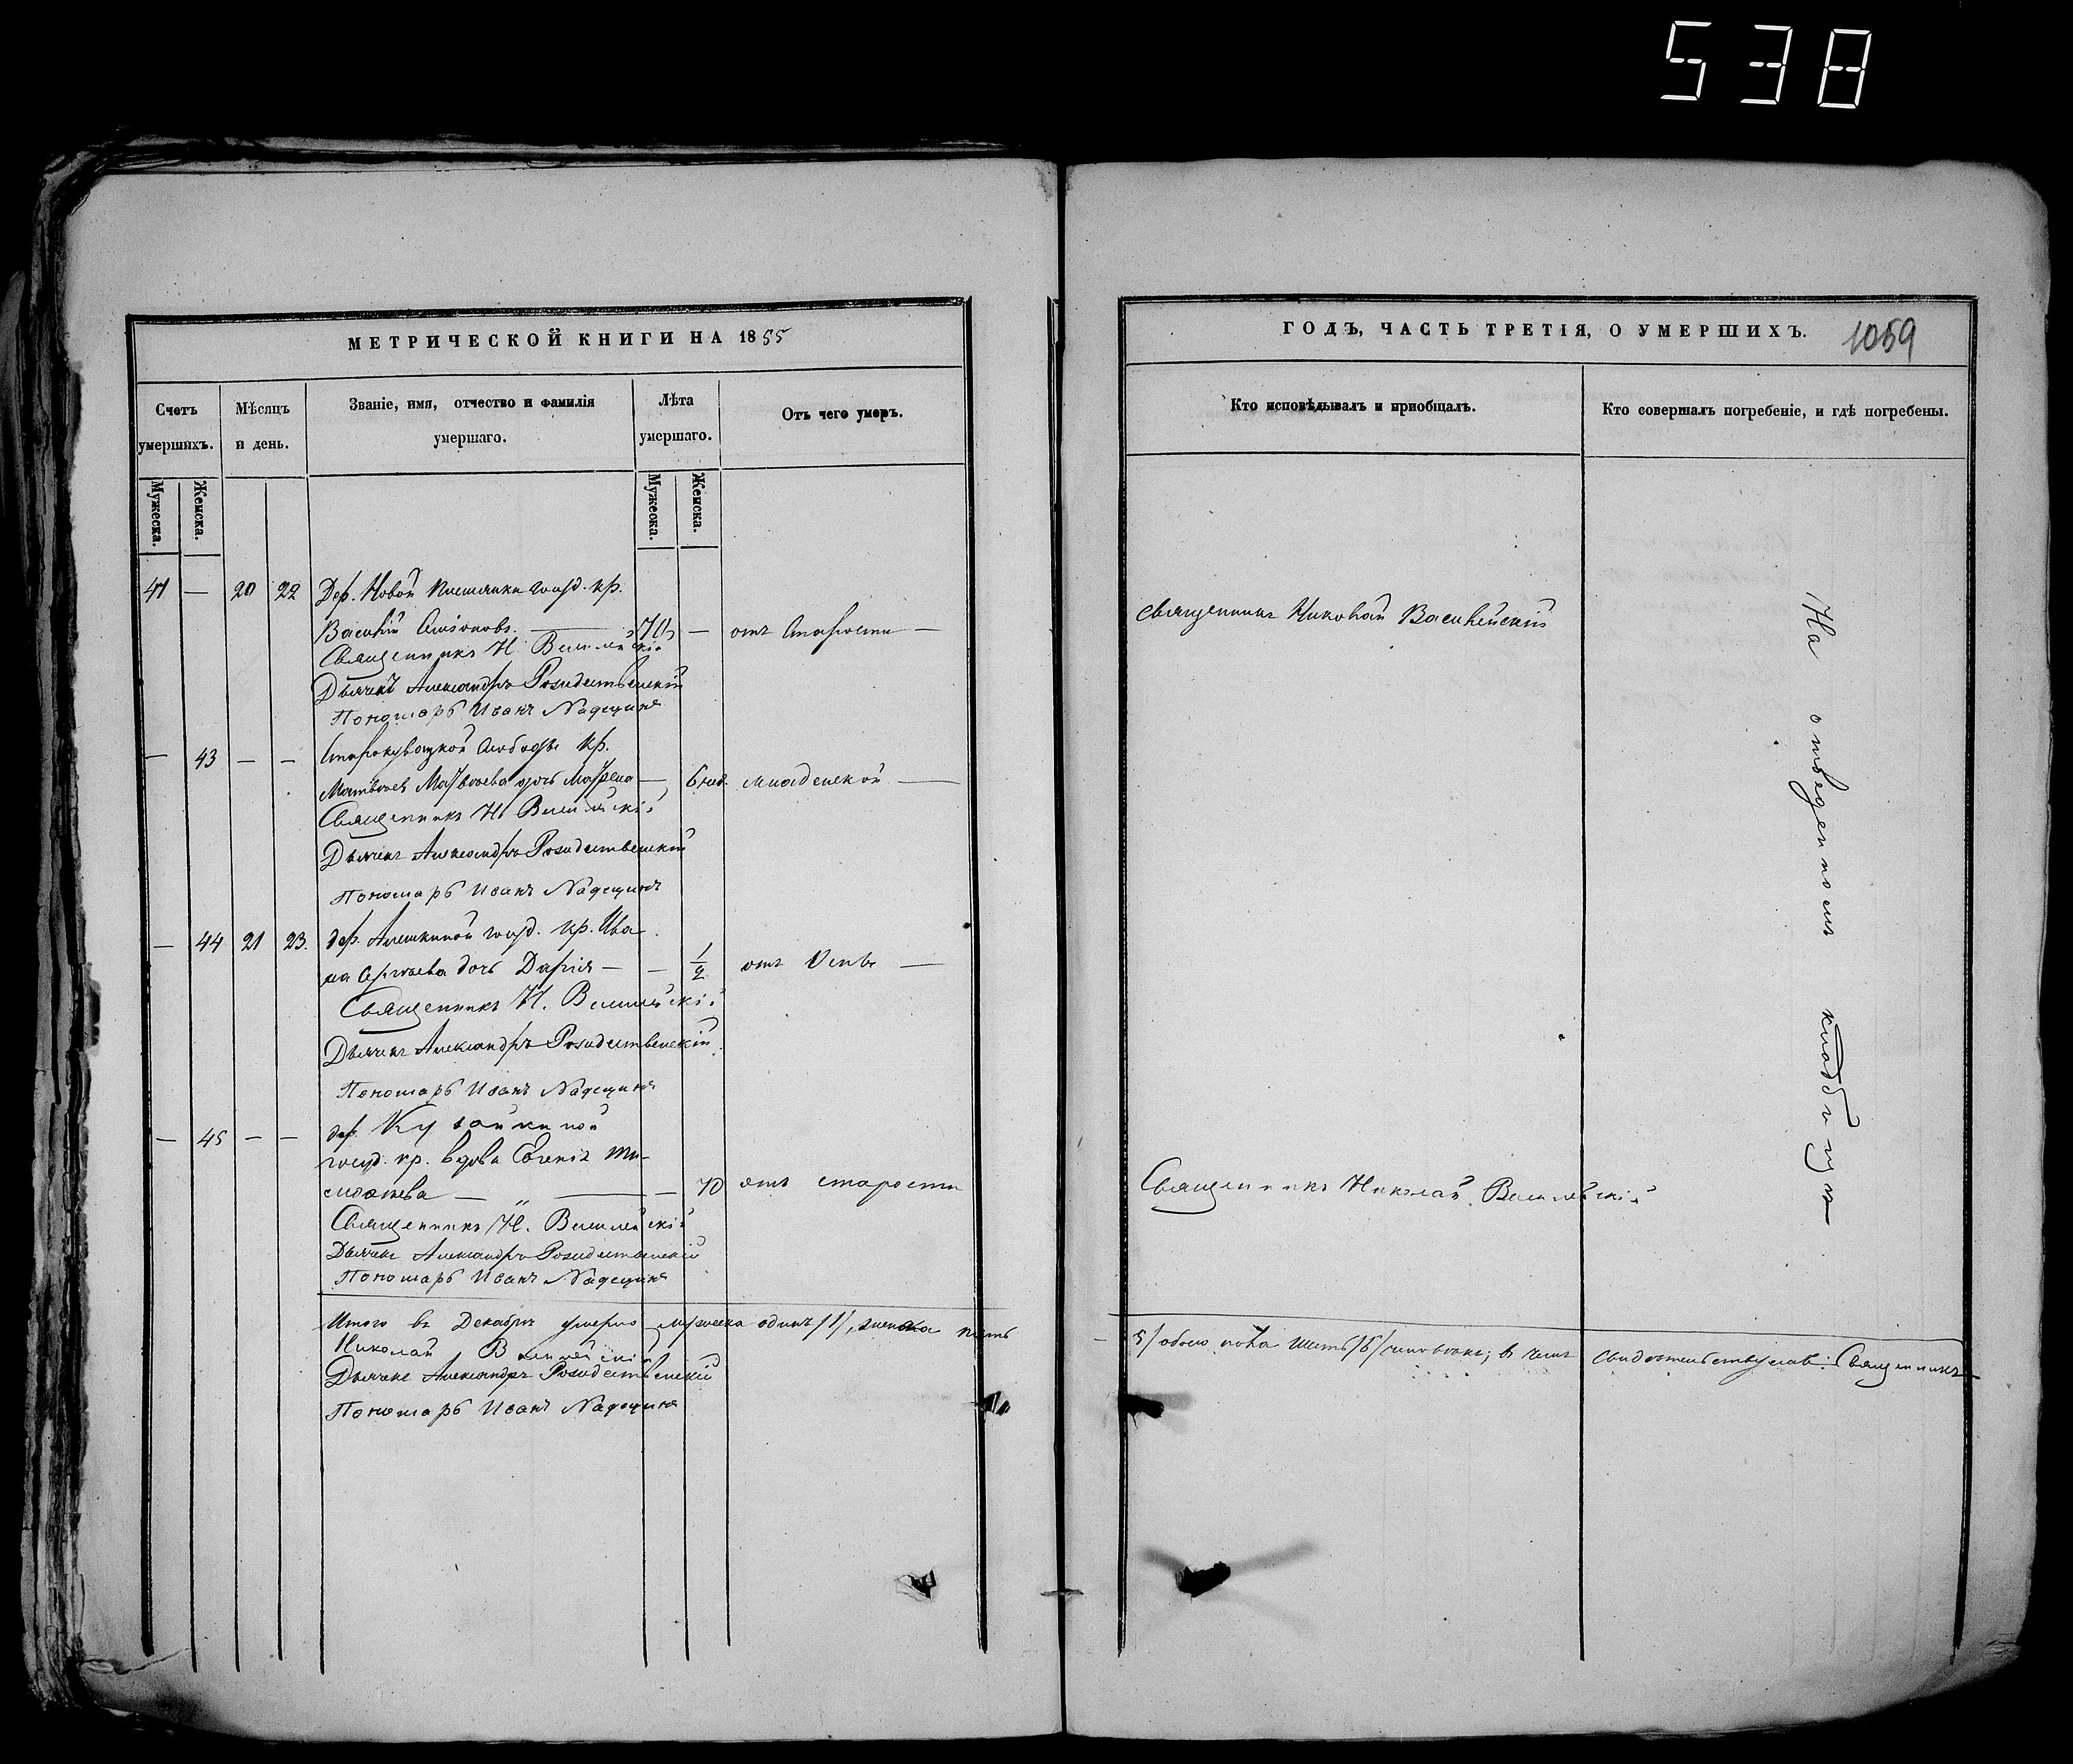 538
МЕТРИЧЕСКОЙ КНИГИ НА 1855
Счетъ умершихъ.
Мѣсяцъ и день.
Званіе, имя, отчество и фамилія умершаго.
Лѣта умершаго.
Отъ чего умеръ.
Мужеска.
Женска.
Мужеска.
Женска.
41 — 20 22 Дер. Новой госуд. кр.
Василій — 70 — отъ старости —
Священникъ Н. Василейскій
Дьячекъ Александръ Рождественскій
Пономарь Иванъ Надеждинъ
— 43 — — слободы кр.
дочь — 6 нед. младенской —
Священникъ Н. Василейскій
Дьячекъ Александръ Рождественскій
Пономарь Иванъ Надеждинъ
— 44 21 23. дер. Алешкиной госуд. кр. Ива
на Сергѣева дочь Дарія — — 1/2 отъ Оспы —
Священникъ Н. Василейскій
Дьячекъ Александръ Рождественскій
Пономарь Иванъ Надеждинъ
— 45 — — дер. Кувайкиной
госуд. кр. вдова Евгенія Ти-
моѳѣева — „ — — 70 отъ старости
Священникъ Н. Василейскій
Дьячекъ Александръ Рождественскій
Пономарь Иванъ Надеждинъ
Итого въ Декабрѣ умерло мужеска одинъ /1/, женска пять
Николай Василейскій
Дьячекъ Александръ Рождественскій
Пономарь Иванъ Надеждинъ
ГОДЪ, ЧАСТЬ ТРЕТІЯ, О УМЕРШИХЪ.
1059
Кто исповѣдывалъ и приобщалъ.
Кто совершалъ погребеніе, и гдѣ погребены.
Священникъ Николай Василейскій
На отведенномъ кладбищѣ
Священникъ Николай Василейскій
5/ обоего пола шесть /6/ человѣкъ; въ чемъ свидѣтельствуемъ: Священникъ